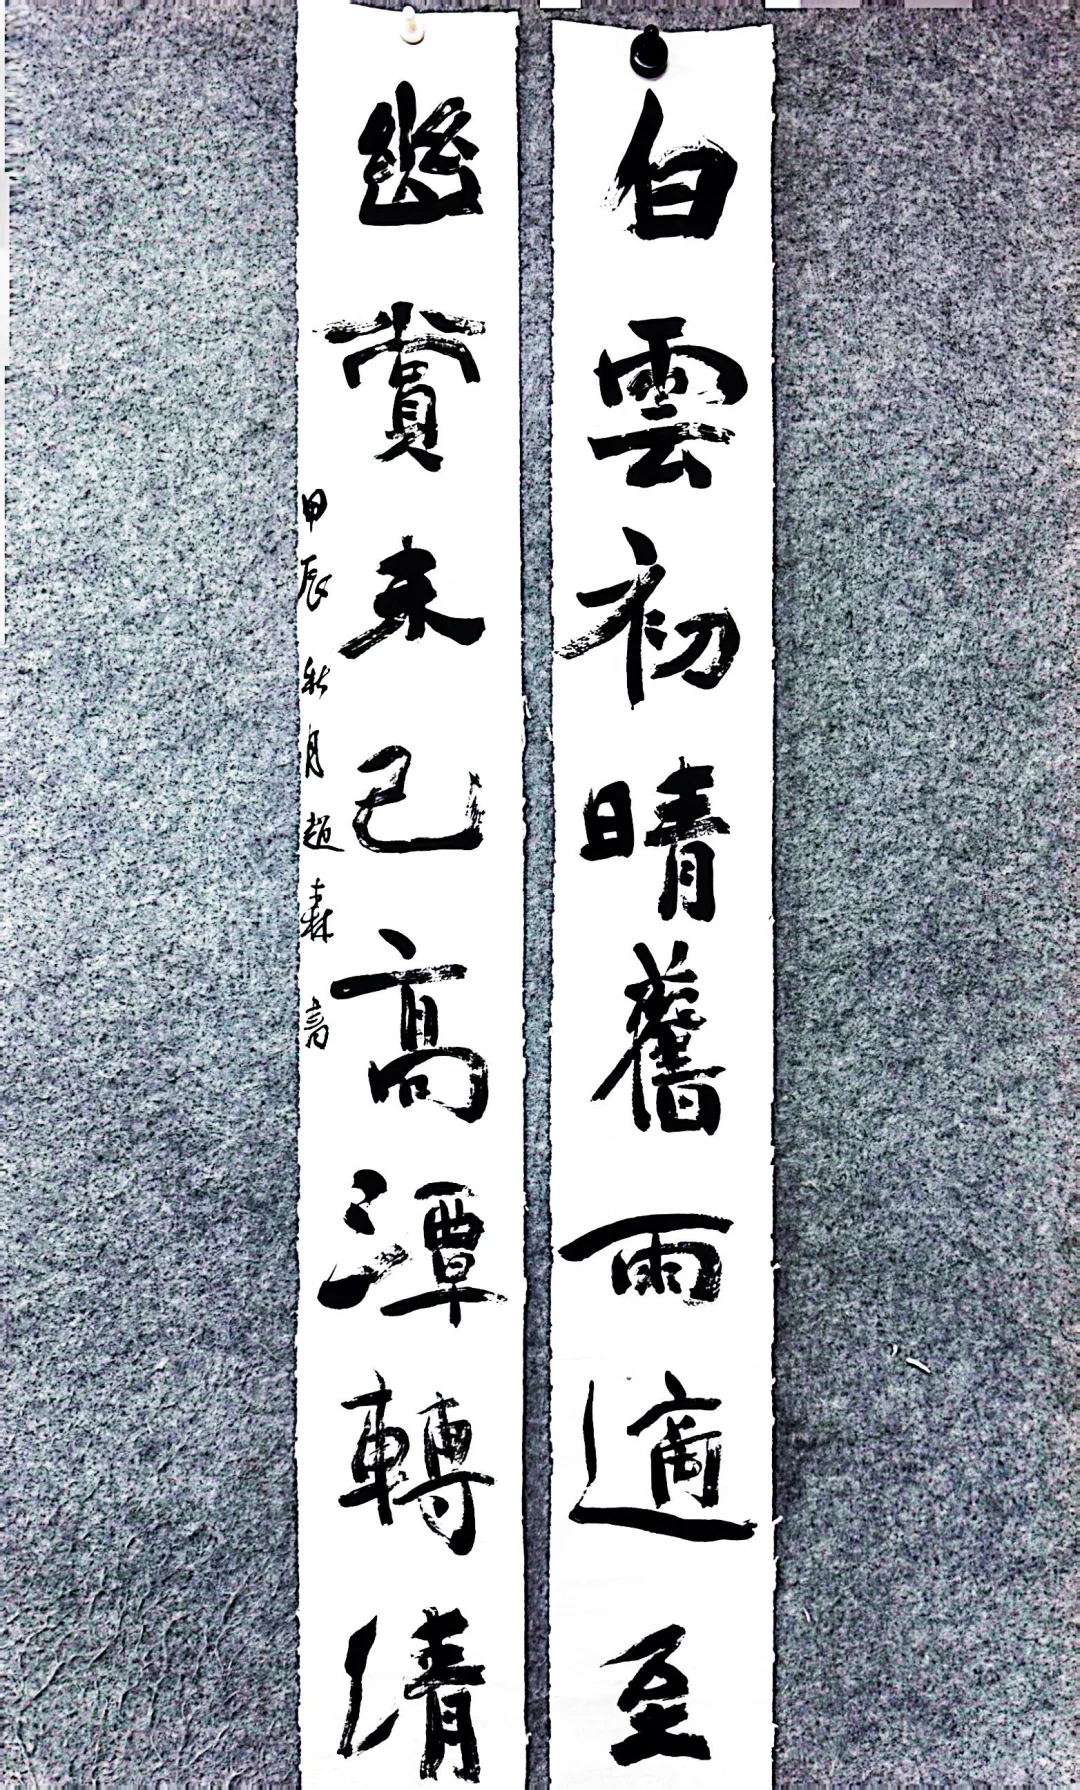 白雲初晴舊雨適至
幽賞未已高潭轉清
甲辰秋月趙森書